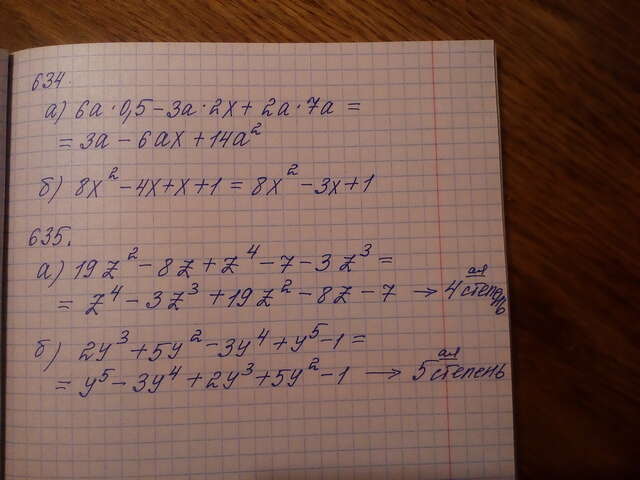 634.
а) 6a·0,5-3a·2x+2a·7a=
=3a-6ax+14a²
б) 8x²-4x+x+1=8x²-3x+1
635.
а) 19z²-8z+z⁴-7-3z³=
=z⁴-3z³+19z²-8z-7 → 4ая степень
б) 2y³+5y²-3y⁴+y⁵-1=
=y⁵-3y⁴+2y³+5y²-1 → 5ая степень